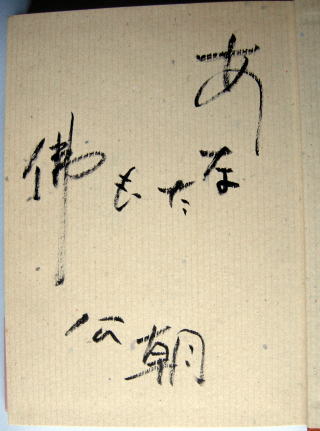 あなたも佛
公朝